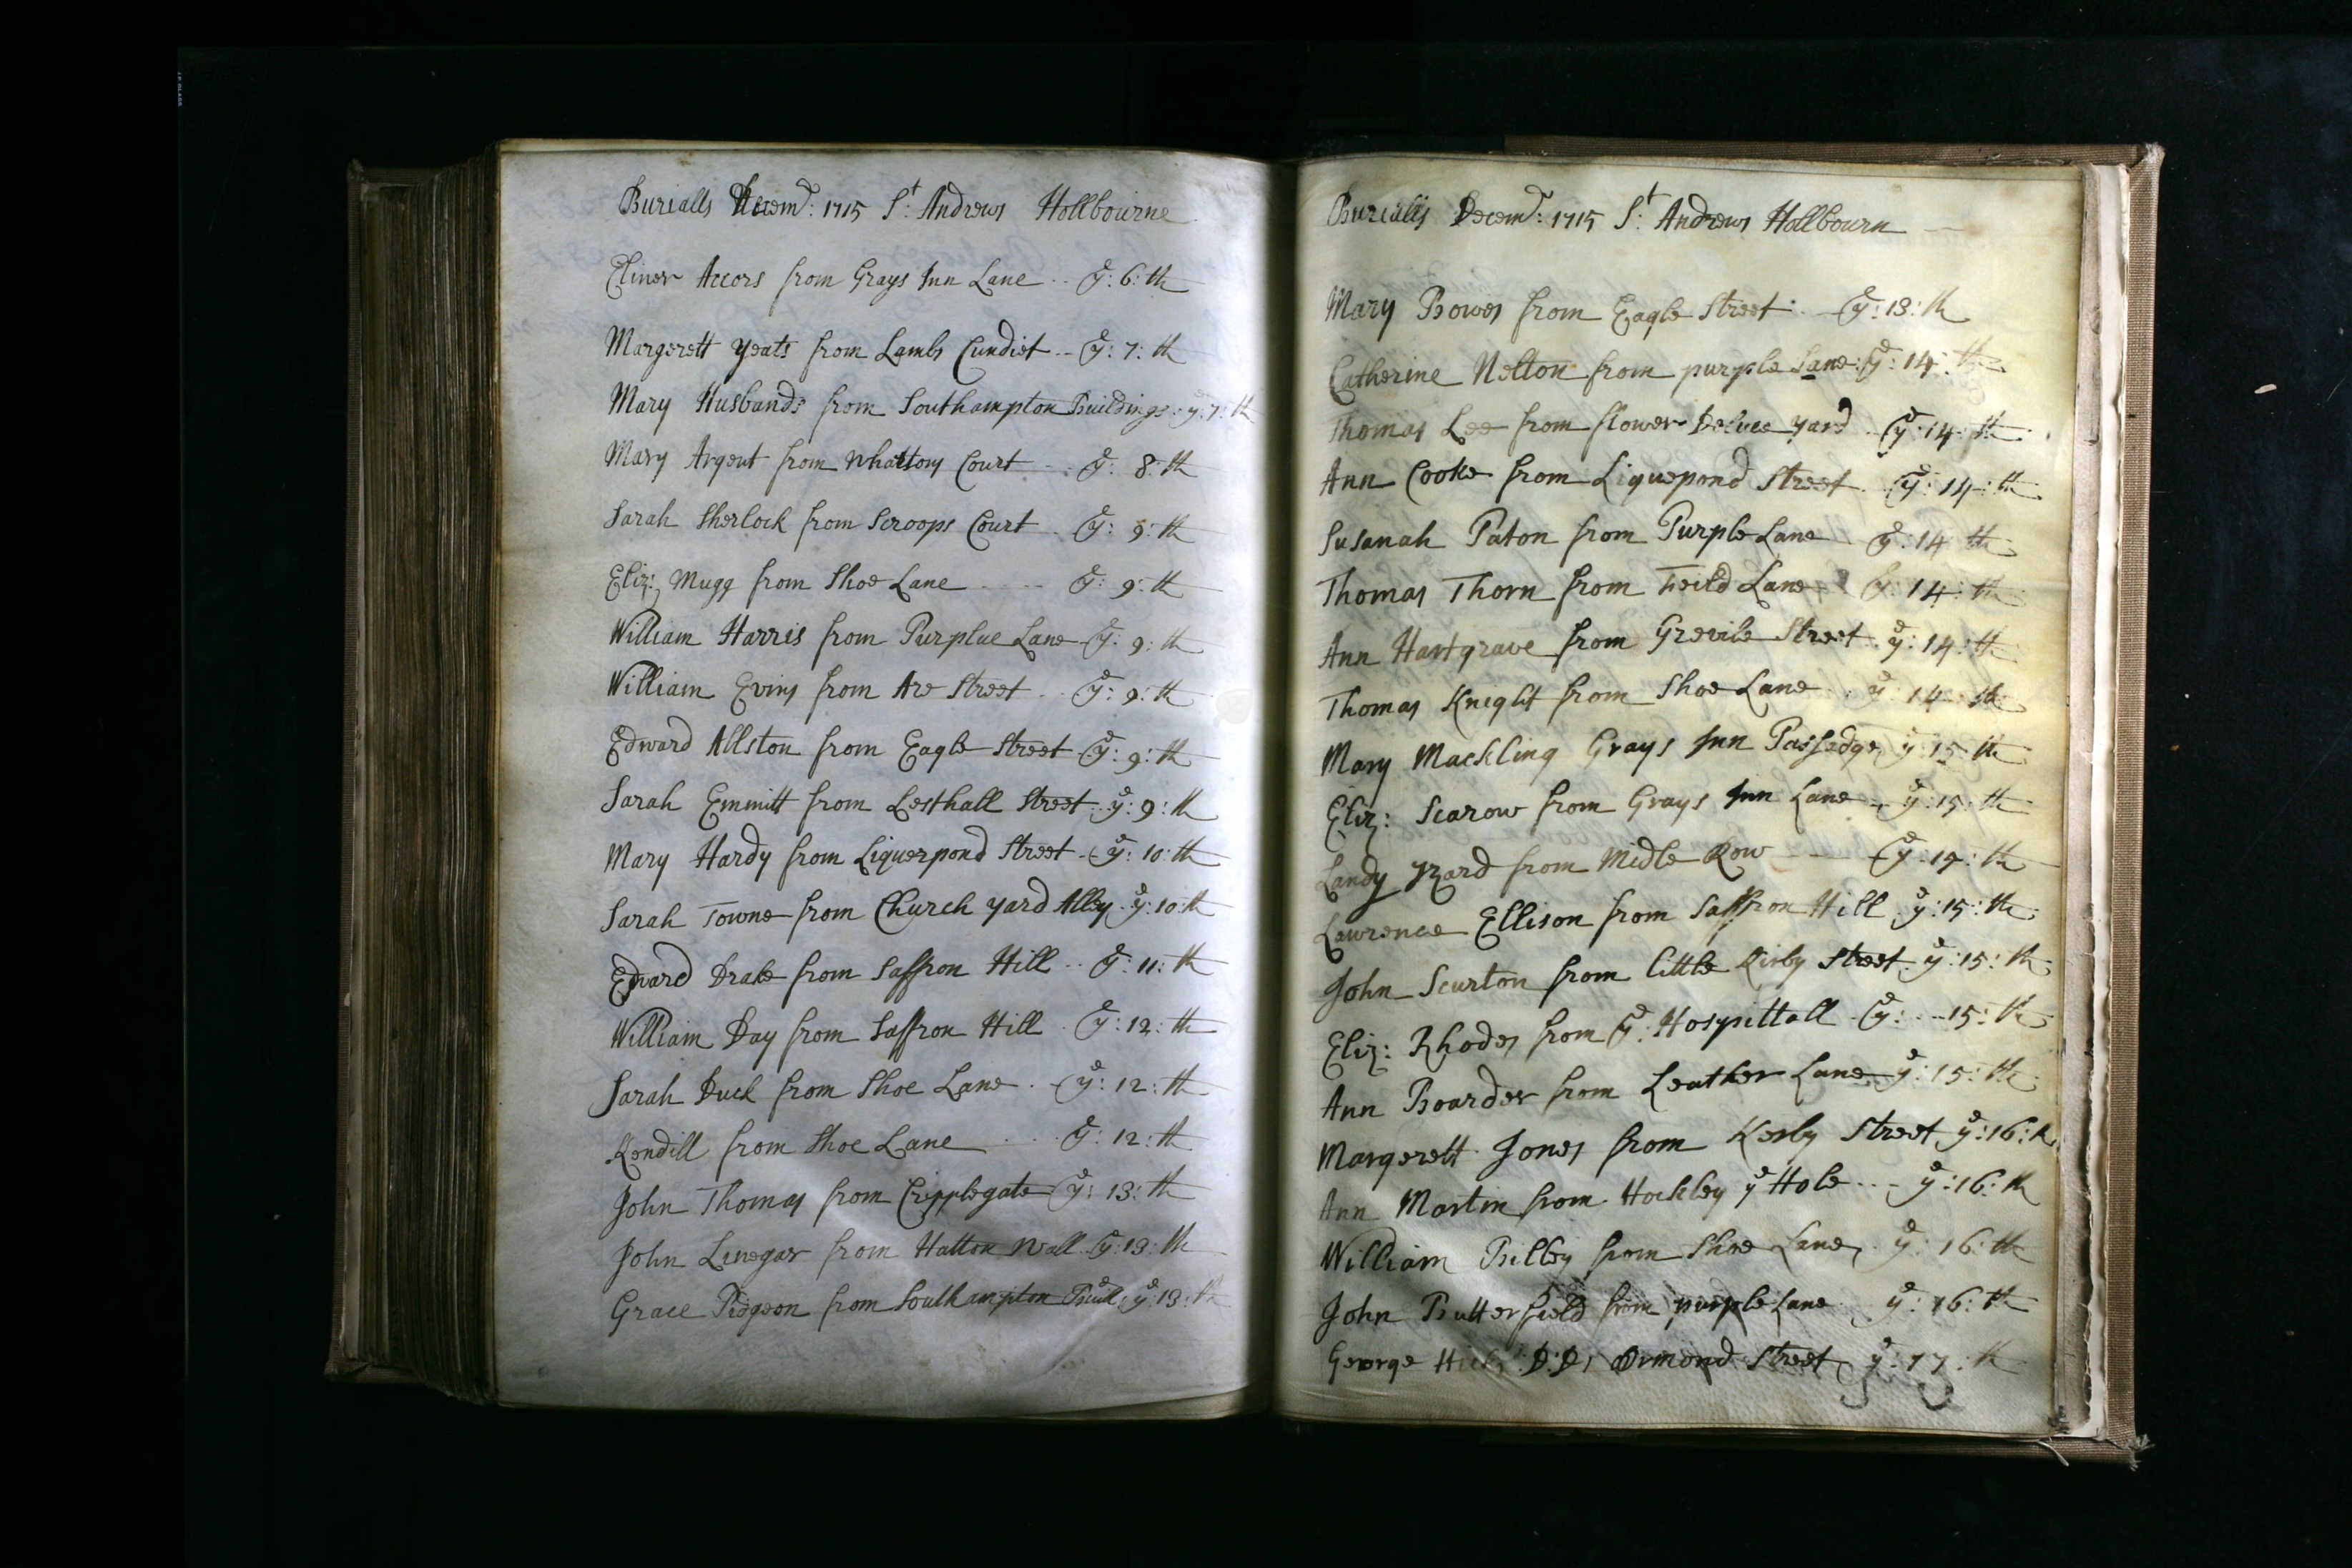 Burialls Decemr: 1715 St: Andrews Hollbourne
Elinor Accors from Grays Inn Lane ye: 6: th
Margerett Yeats from Lambs Cundiet ye: 7: th
Mary Husbands from Southampton Buildings ye: 7: th
Mary Argent from Whattons Court ye: 8: th
Sarah Sherlock from Scroops Court ye: 9: th
Eliz: Mugg from Shoe Lane ye: 9: th
William Harris from Purplue Lane ye: 9: th
William Evins from Are Street ye: 9: th
Edward Allston from Eagle Street ye: 9: th
Sarah Emmitt from Lesthall Street ye: 9: th
Mary Hardy from Liquerpond Street ye: 10: th
Sarah Towne from Church yard Alley ye: 10: th
Edward Drake from Saffron Hill ye: 11: th
William Day from Saffron Hill ye: 12: th
Sarah Duck from Shoe Lane ye: 12: th
Kendill from Shoe Lane ye: 12: th
John Thomas from Cripplegate ye: 13: th
John Linegar from Hatton Wall ye: 13: th
Grace Pidgeon from Southampton Build ye: 13: th
Burialls Decemr: 1715 St: Andrews Hollbourn
Mary Bowes from Eagle Street ye: 13: th
Catherine Nelton from purple Lane ye: 14: th
Thomas Lee from flower Deluce yard ye: 14: th
Ann Cooke from Liquepond Street ye: 14: th
Susanah Paton from Purple Lane ye: 14 th
Thomas Thorn from Feild Lane ye: 14: th
Ann Hartgrave from Grevile Street ye: 14: th
Thomas Knight from Shoe Lane ye: 14 th
Mary Mackling Grays Inn Passadge ye: 15 th
Eliz: Scarow from Grays Inn Lane ye: 15: th
Landy from Midle Row ye: 15: th
Lawrence Ellison from Saffron Hill ye: 15: th
John Scurton from little Kirby Street ye: 15: th
Eliz: Rhodes from ye: Hospittall ye: 15: th
Ann Boarder from Leather Lane ye: 15: th
Margerett Jones from Kerby Street ye: 16: th
Ann Martin from Hockley ye Hole ye: 16: th
William Bilby from Shoe Lane ye: 16: th
John Butterfield from purple Lane ye: 16: th
George Hicks D:D: Ormond Street ye: 17: th